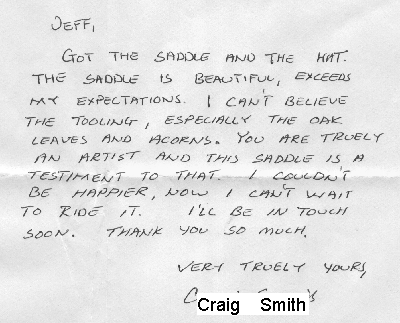 JEFF,
GOT THE SADDLE AND THE HAT.
THE SADDLE IS BEAUTIFUL, EXCEEDS
MY EXPECTATIONS. I CAN'T BELIEVE
THE TOOLING, ESPECIALLY THE OAK
LEAVES AND ACORNS. YOU ARE TRUELY
AN ARTIST AND THIS SADDLE IS A
TESTIMENT TO THAT. I COULDN'T
BE HAPPIER, NOW I CAN'T WAIT
TO RIDE IT. I'LL BE IN TOUCH
SOON. THANK YOU SO MUCH.
VERY TRUELY YOURS,
Craig Smith